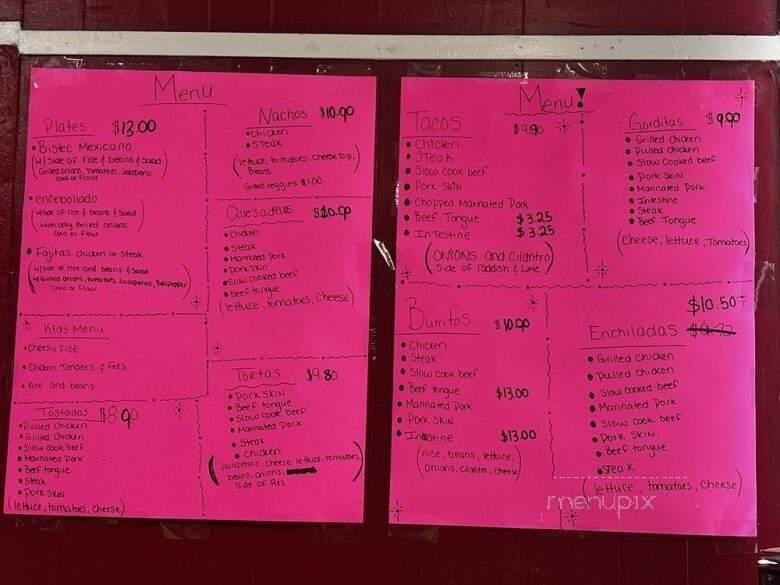 Menu
Plates $13.00
Bistec Mexicano
(w/side of rice & beans & salad
Grilled onions, tomatoes, Jalapeno,
corn or flour
encebollado
w/side of rice & beans & salad
with only Grilled onions
corn or flour
Fajitas chicken or steak
w/side of rice and beans & salad
w/Grilled onions, tomatoes, Jalapenos, Bellpepper
corn or flour
Kids Menu
Cheesy rice
Chicken Tenders & Fries
rice and beans
Tostadas $8.90
Pulled Chicken
Grilled Chicken
Slow cook beef
Marinated Pork
Beef tongue
Steak
Pork Skin
(lettuce, tomatoes, cheese)
Nachos $10.90
Chicken
Steak
(lettuce, tomatoes, cheese Dip,
Beans
Grilled veggies $1.00
Quesadillas
Chicken
Steak
Marinated Pork
Pork skin
Slow cooked beef
beef tongue
(lettuce, tomatoes, cheese)
Tortas $9.80
Pork Skin
Beef tongue
Slow cook beef
Marinated Pork
Steak
Chicken
(Jalapenos, cheese, lettuce, tomatoes,
beans, onions,
Side of Res)
Menu!
Tacos
Chicken
Steak
Slow cook beef
Pork Skin
Chopped Marinated Pork
Beef Tongue $3.25
Intestine $3.25
(Onions and Cilantro)
Side of raddish & Lime
Burritos $10.90
Chicken
Steak
Slow cook beef
Beef tongue $13.00
Marinated Pork
Pork Skin
Intestine $13.00
(rice, beans, lettuce,
onions, cilantro, cheese)
Gorditas $9.90
Grilled Chicken
Pulled Chicken
Slow Cooked beef
Pork Skin
Marinated Pork
Intestine
Steak
Beef Tongue
(Cheese, lettuce, Tomatoes)
$10.50
Enchiladas
Grilled chicken
Pulled chicken
Slow cooked beef
Marinated Pork
Slow cook beef
Pork Skin
Beef tongue
Steak
(lettuce, tomatoes, cheese)
menupix